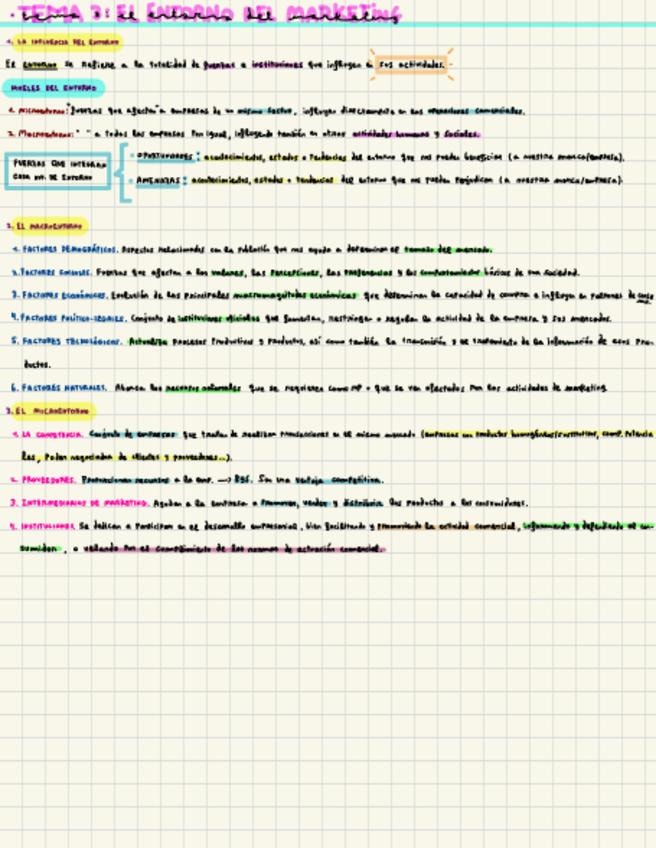 TEMA 3: EL ENTORNO DEL MARKETING
1. LA INFLUENCIA DEL ENTORNO
El entorno se refiere a la totalidad de fuerzas e instituciones que influyen en sus actividades.
NIVELES DEL ENTORNO
1. Microentorno: "fuerzas que afectan" a empresas de un mismo sector, influyen directamente en las operaciones comerciales.
2. Macroentorno: " " a todas las empresas por igual, influyendo también en otras actividades humanas y sociales.
FUERZAS QUE INTEGRAN
CADA NIV. DE ENTORNO
OPORTUNIDADES: acontecimientos, estados o tendencias del entorno que nos pueden beneficiar (a nuestra marca/empresa).
AMENAZAS: acontecimientos, estados o tendencias del entorno que nos pueden perjudicar (a nuestra marca/empresa).
2. EL MACROENTORNO
1. FACTORES DEMOGRÁFICOS. Aspectos relacionados con la población que nos ayuda a determinar el tamaño del mercado.
2. FACTORES SOCIALES. Fuerzas que afectan a los valores, las percepciones, las preferencias y los comportamientos básicos de una sociedad.
3. FACTORES ECONÓMICOS. Evolución de las principales macromagnitudes económicas que determinan la capacidad de compra e influyen en patrones de
4. FACTORES POLÍTICO-LEGALES. Conjunto de instituciones oficiales que fomentan, restringen o regulan la actividad de la empresa y sus mercados.
5. FACTORES TECNOLÓGICOS. Actualiza procesos productivos y productos, así como también la transmisión y el tratamiento de la información de esos pro-
ductos.
6. FACTORES NATURALES. Abarca los recursos naturales que se requieren como MP o que se ven afectados por las actividades de marketing
3. EL MICROENTORNO
1. LA COMPETENCIA. Conjunto de empresas que tratan de realizar transacciones en el mismo mercado (empresas con productos homogéneos/sustitutivos, comp. potencia-
les, poder negociador de clientes y proveedores...).
2. PROVEEDORES. Proporcionan recursos a la emp. → B&S. Son una ventaja competitiva.
3. INTERMEDIARIOS DE MARKETING. Ayudan a la empresa a promover, vender y distribuir los productos a los consumidores.
4. INSTITUCIONES. Se dedican a participar en el desarrollo empresarial, bien facilitando y promoviendo la actividad comercial, informando y defendiendo al con-
sumidor, o velando por el cumplimiento de las normas de actuación comercial.